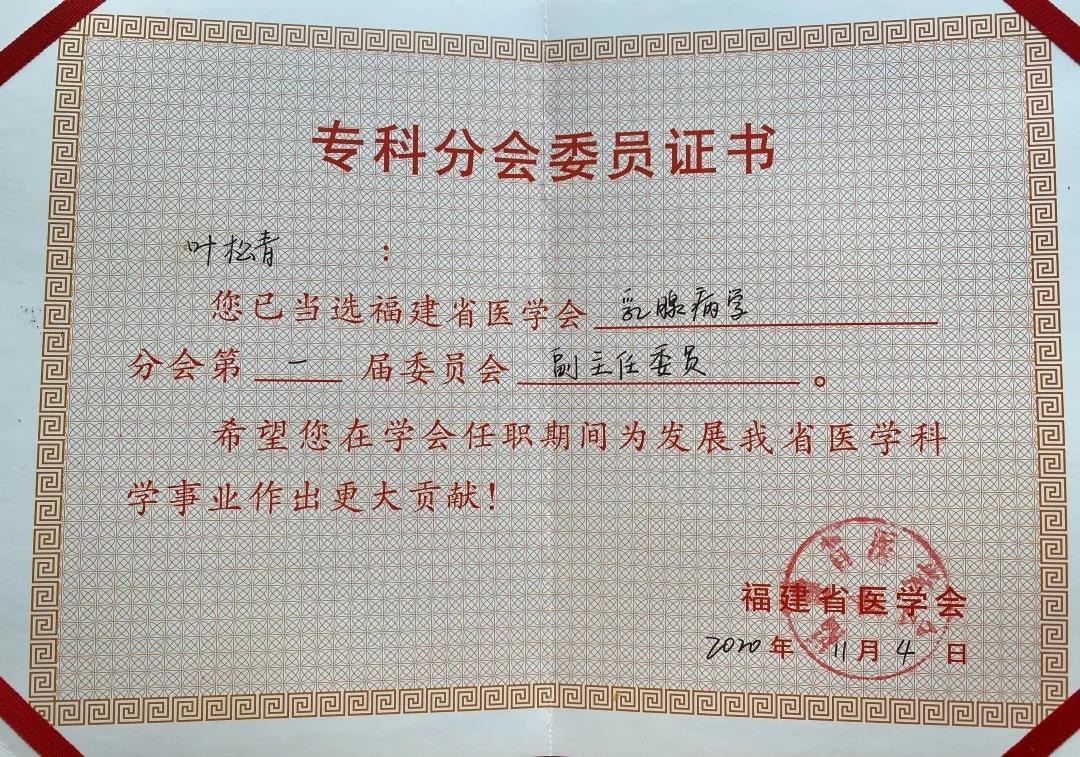 专科分会委员证书
叶松青 :
您已当选福建省医学会 乳腺病学
分会第 一 届委员会 副主任委员 。
希望您在学会任职期间为发展我省医学科
学事业作出更大贡献!
福建省医学会
2020 年 11 月 4 日